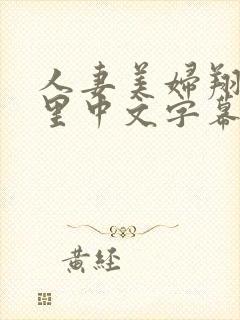 人妻美婦翔
里中文字幕
黃經